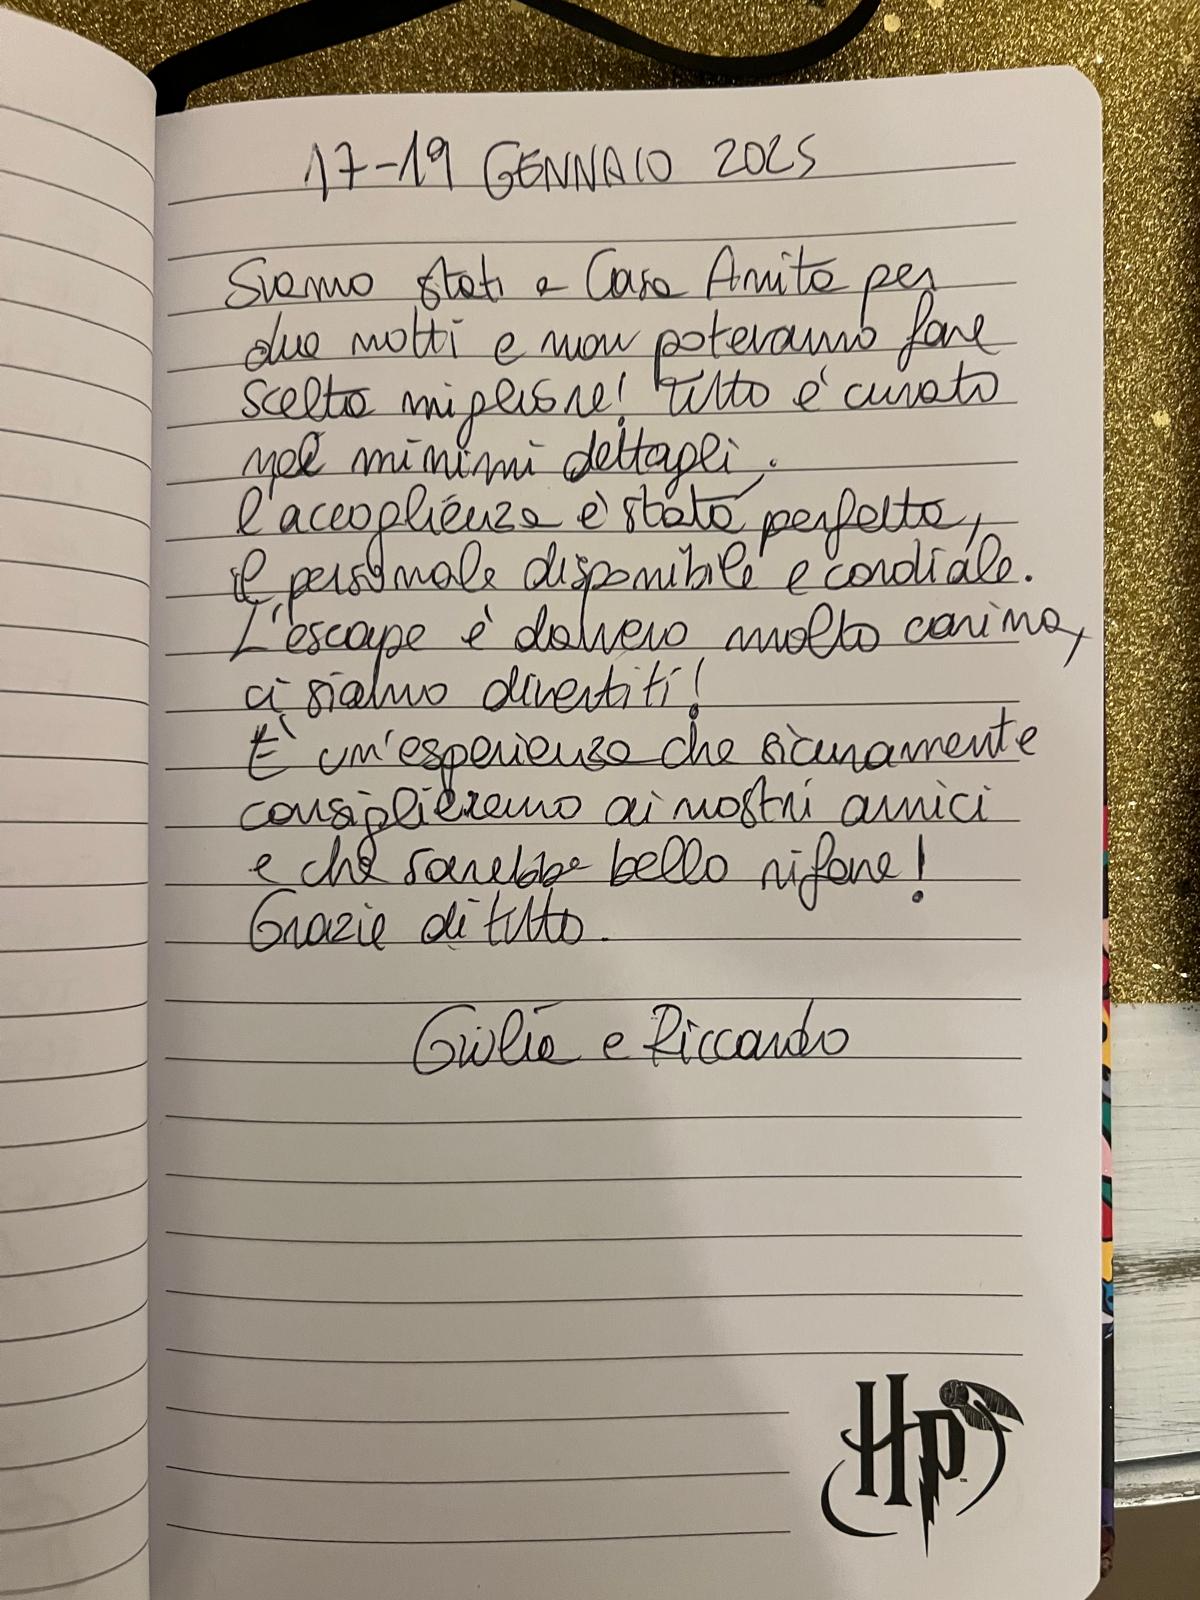 17-19 GENNAIO 2025
Siamo stati a Casa Anita per
due notti e non potevamo fare
scelta migliore! Tutto è curato
nei minimi dettagli.
l'accoglienza è stata perfetta,
il personale disponibile e cordiale.
L'escape è davvero molto carina,
ci siamo divertiti!
È un'esperienza che sicuramente
consiglieremo ai nostri amici
e che sarebbe bello rifare!
Grazie di tutto.
Giulia e Riccardo
HP